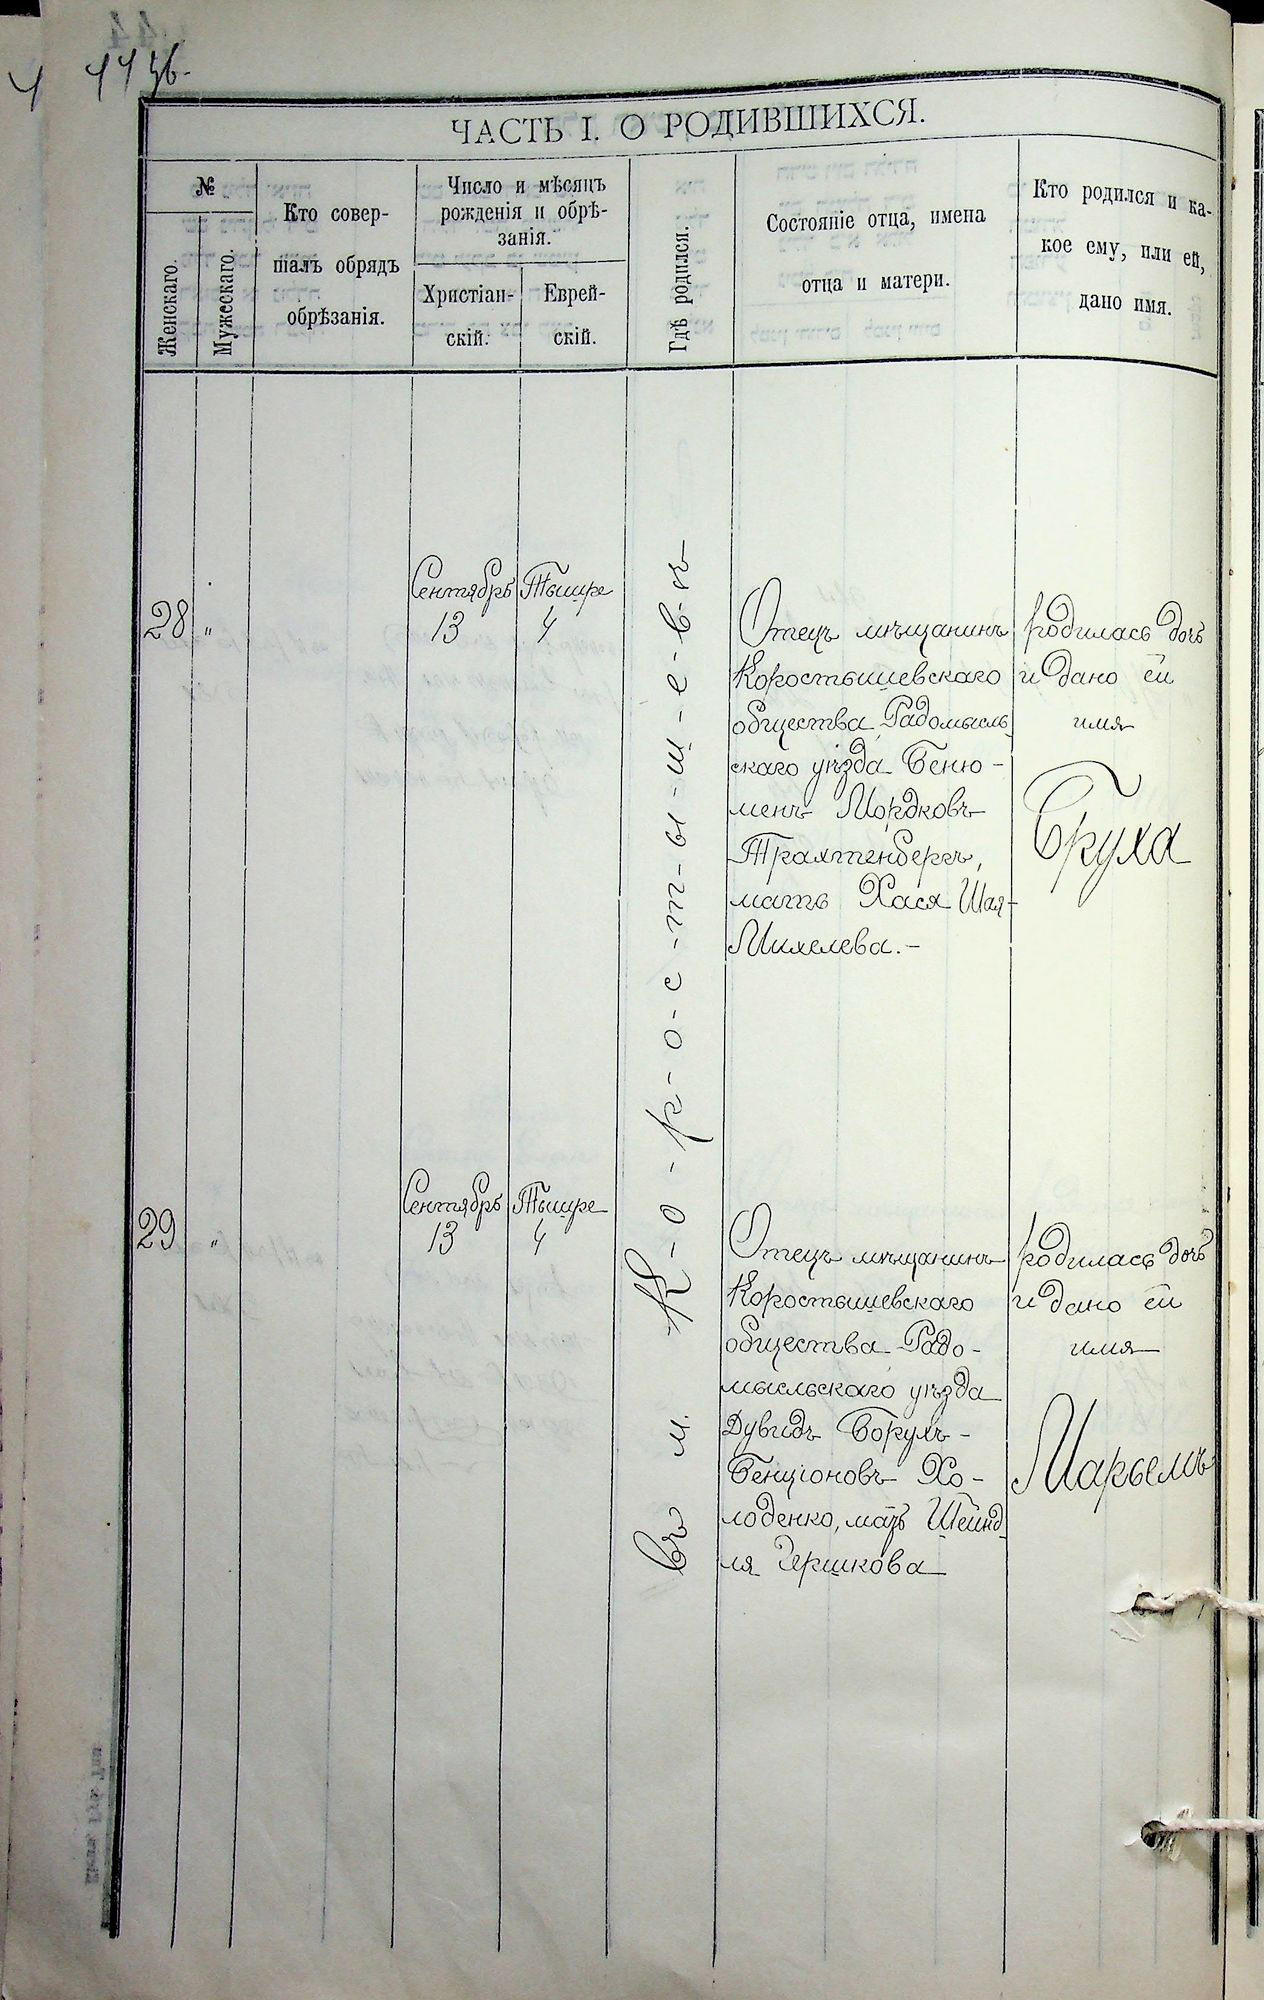 44
ЧАСТЬ I. О РОДИВШИХСЯ.
№
Женскаго.
Мужескаго.
Кто совер-
шалъ обрядъ
обрѣзанія.
Число и мѣсяцъ
рожденія и обрѣ-
занія.
Христіан-
скій.
Еврей-
скій.
Гдѣ родился.
Состояніе отца, имена
отца и матери.
Кто родился и ка-
кое ему, или ей,
дано имя.
Въ м. К-о-р-о-с-т-ы-ш-е-в-ѣ
28
"
Сентябрь
13
Тышре
4
Отецъ мѣщанинъ
Коростышевскаго
общества Радомысль
скаго уѣзда Беню-
менъ Мордковъ
Трахтенбергъ,
мать Хася Шая-
Михелева.-
родилась дочь
и дано ей
имя
Бруха
29
"
Сентябрь
13
Тышре
4
Отецъ мѣщанинъ
Коростышевскаго
общества Радо-
мысльскаго уѣзда
Дувидъ Борухъ-
Бенціоновъ Хо-
лоденко, мать Шейнд
ля Гершкова
родилась дочь
и дано ей
имя
Марьемъ